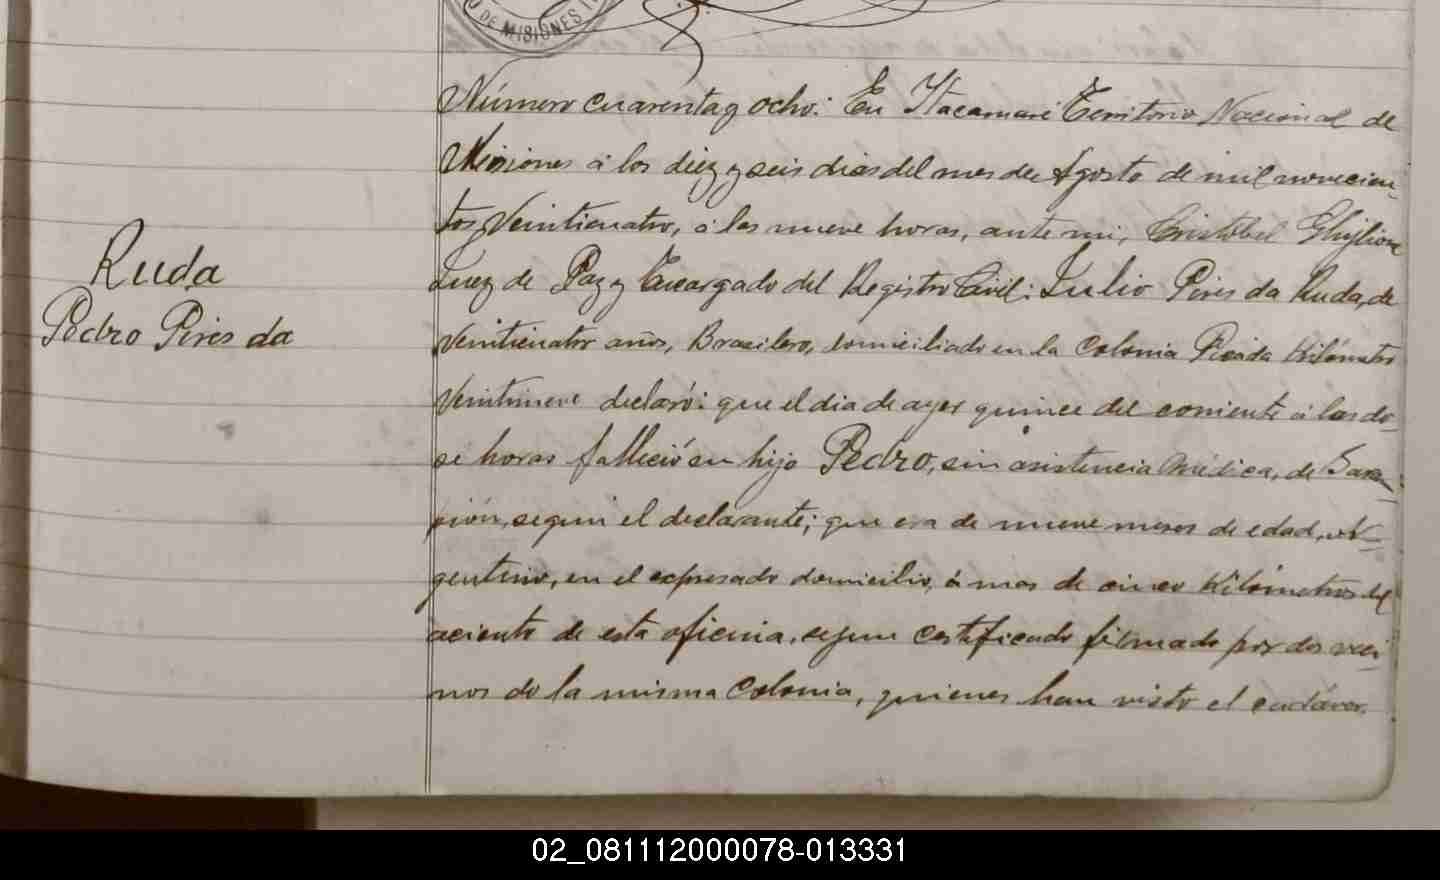 DE MISIONES
Número cuarenta y ocho: En Itacaruaré Territorio Nacional de
Misiones á los diez y seis dias del mes de Agosto de mil novecien-
tos Veinticuatro, á las nueve horas, ante mi, Cristóbal Ghiglione
Juez de Paz y Encargado del Registro Civil: Julio Pires da Ruda, de
Veinticuatro años, Brasilero, domiciliado en la Colonia Picada Kilómetro
Veintinueve declaró: que el dia de ayer quince del corriente á las do-
se horas falleció su hijo Pedro, sin asistencia Médica, de Saram-
pión, segun el declarante; que era de nueve meses de edad, Ar-
gentino, en el expresado domicilio, á mas de cinco Kilómetros del
aciento de esta oficina, segun certificado firmado por dos veci-
nos de la misma Colonia, quienes han visto el cadáver.
Ruda
Pedro Pires da
02_081112000078-013331